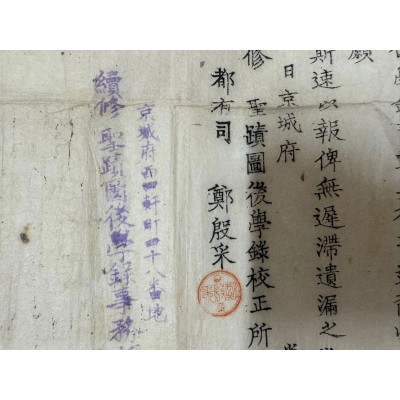 願
斯速以報俾無遲滯遺漏之
日京城府
修 聖蹟圖後學錄校正所
都有司 鄭殷采
京城府西四軒町四十八番地
續修 聖蹟圖後學錄事務